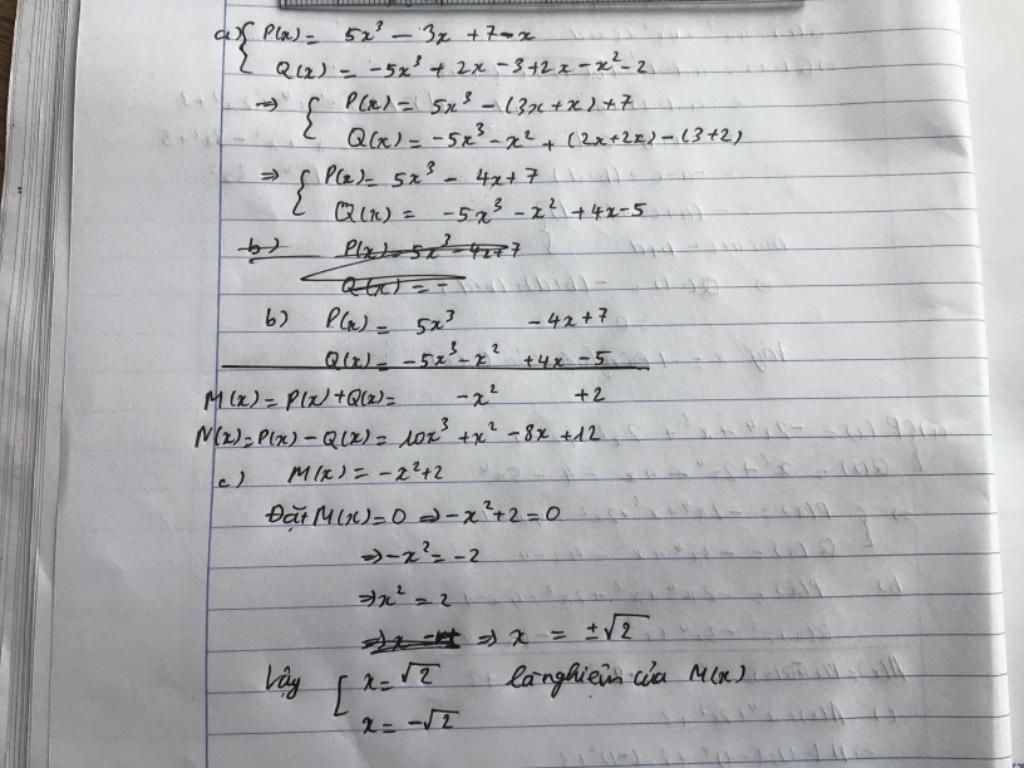 a) { P(x) = 5x³ - 3x + 7 - x
Q(x) = -5x³ + 2x - 3 + 2x - x² - 2
⇒ { P(x) = 5x³ - (3x + x) + 7
Q(x) = -5x³ - x² + (2x + 2x) - (3 + 2)
⇒ { P(x) = 5x³ - 4x + 7
Q(x) = -5x³ - x² + 4x - 5
b) P(x) = 5x³ - 4x + 7
Q(x) = -
b) P(x) = 5x³ - 4x + 7
Q(x) = -5x³ - x² + 4x - 5
M(x) = P(x) + Q(x) = -x² + 2
N(x) = P(x) - Q(x) = 10x³ + x² - 8x + 12
c) M(x) = -x² + 2
Đặt M(x) = 0 ⇒ -x² + 2 = 0
⇒ -x² = -2
⇒ x² = 2
⇒ x = ±√2
Vậy [ x = √2 là nghiệm của M(x)
x = -√2